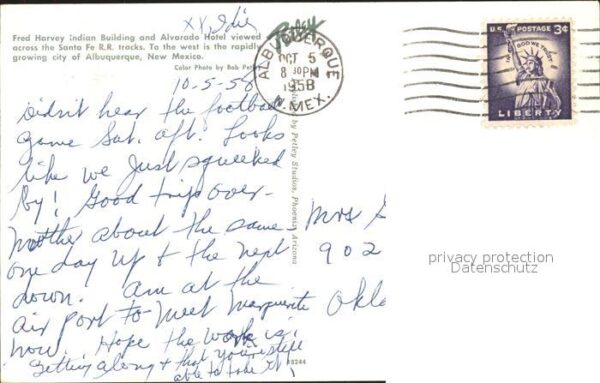 XX, Edie
Fred Harvey Indian Building and Alvarado Hotel viewed
across the Santa Fe R.R. tracks. To the west is the rapidly
growing city of Albuquerque, New Mexico.
Color Photo by Bob Petley
Petley
ALBUQUERQUE
OCT 5
8 30 PM
1958
N. MEX.
U.S. POSTAGE 3¢
IN GOD WE TRUST
LIBERTY
10-5-58
Didn't hear the football
game Sat. aft. Looks
like we just squeeked
by! Good trip over-
Mother about the same
one day up & the next
down. Am at the
air port to meet Marguerite
now. Hope the work is
getting along & that you're still
able to take it!
by Petley Studios, Phoenix, Arizona
Mrs S
902
Okla
privacy protection
Datenschutz